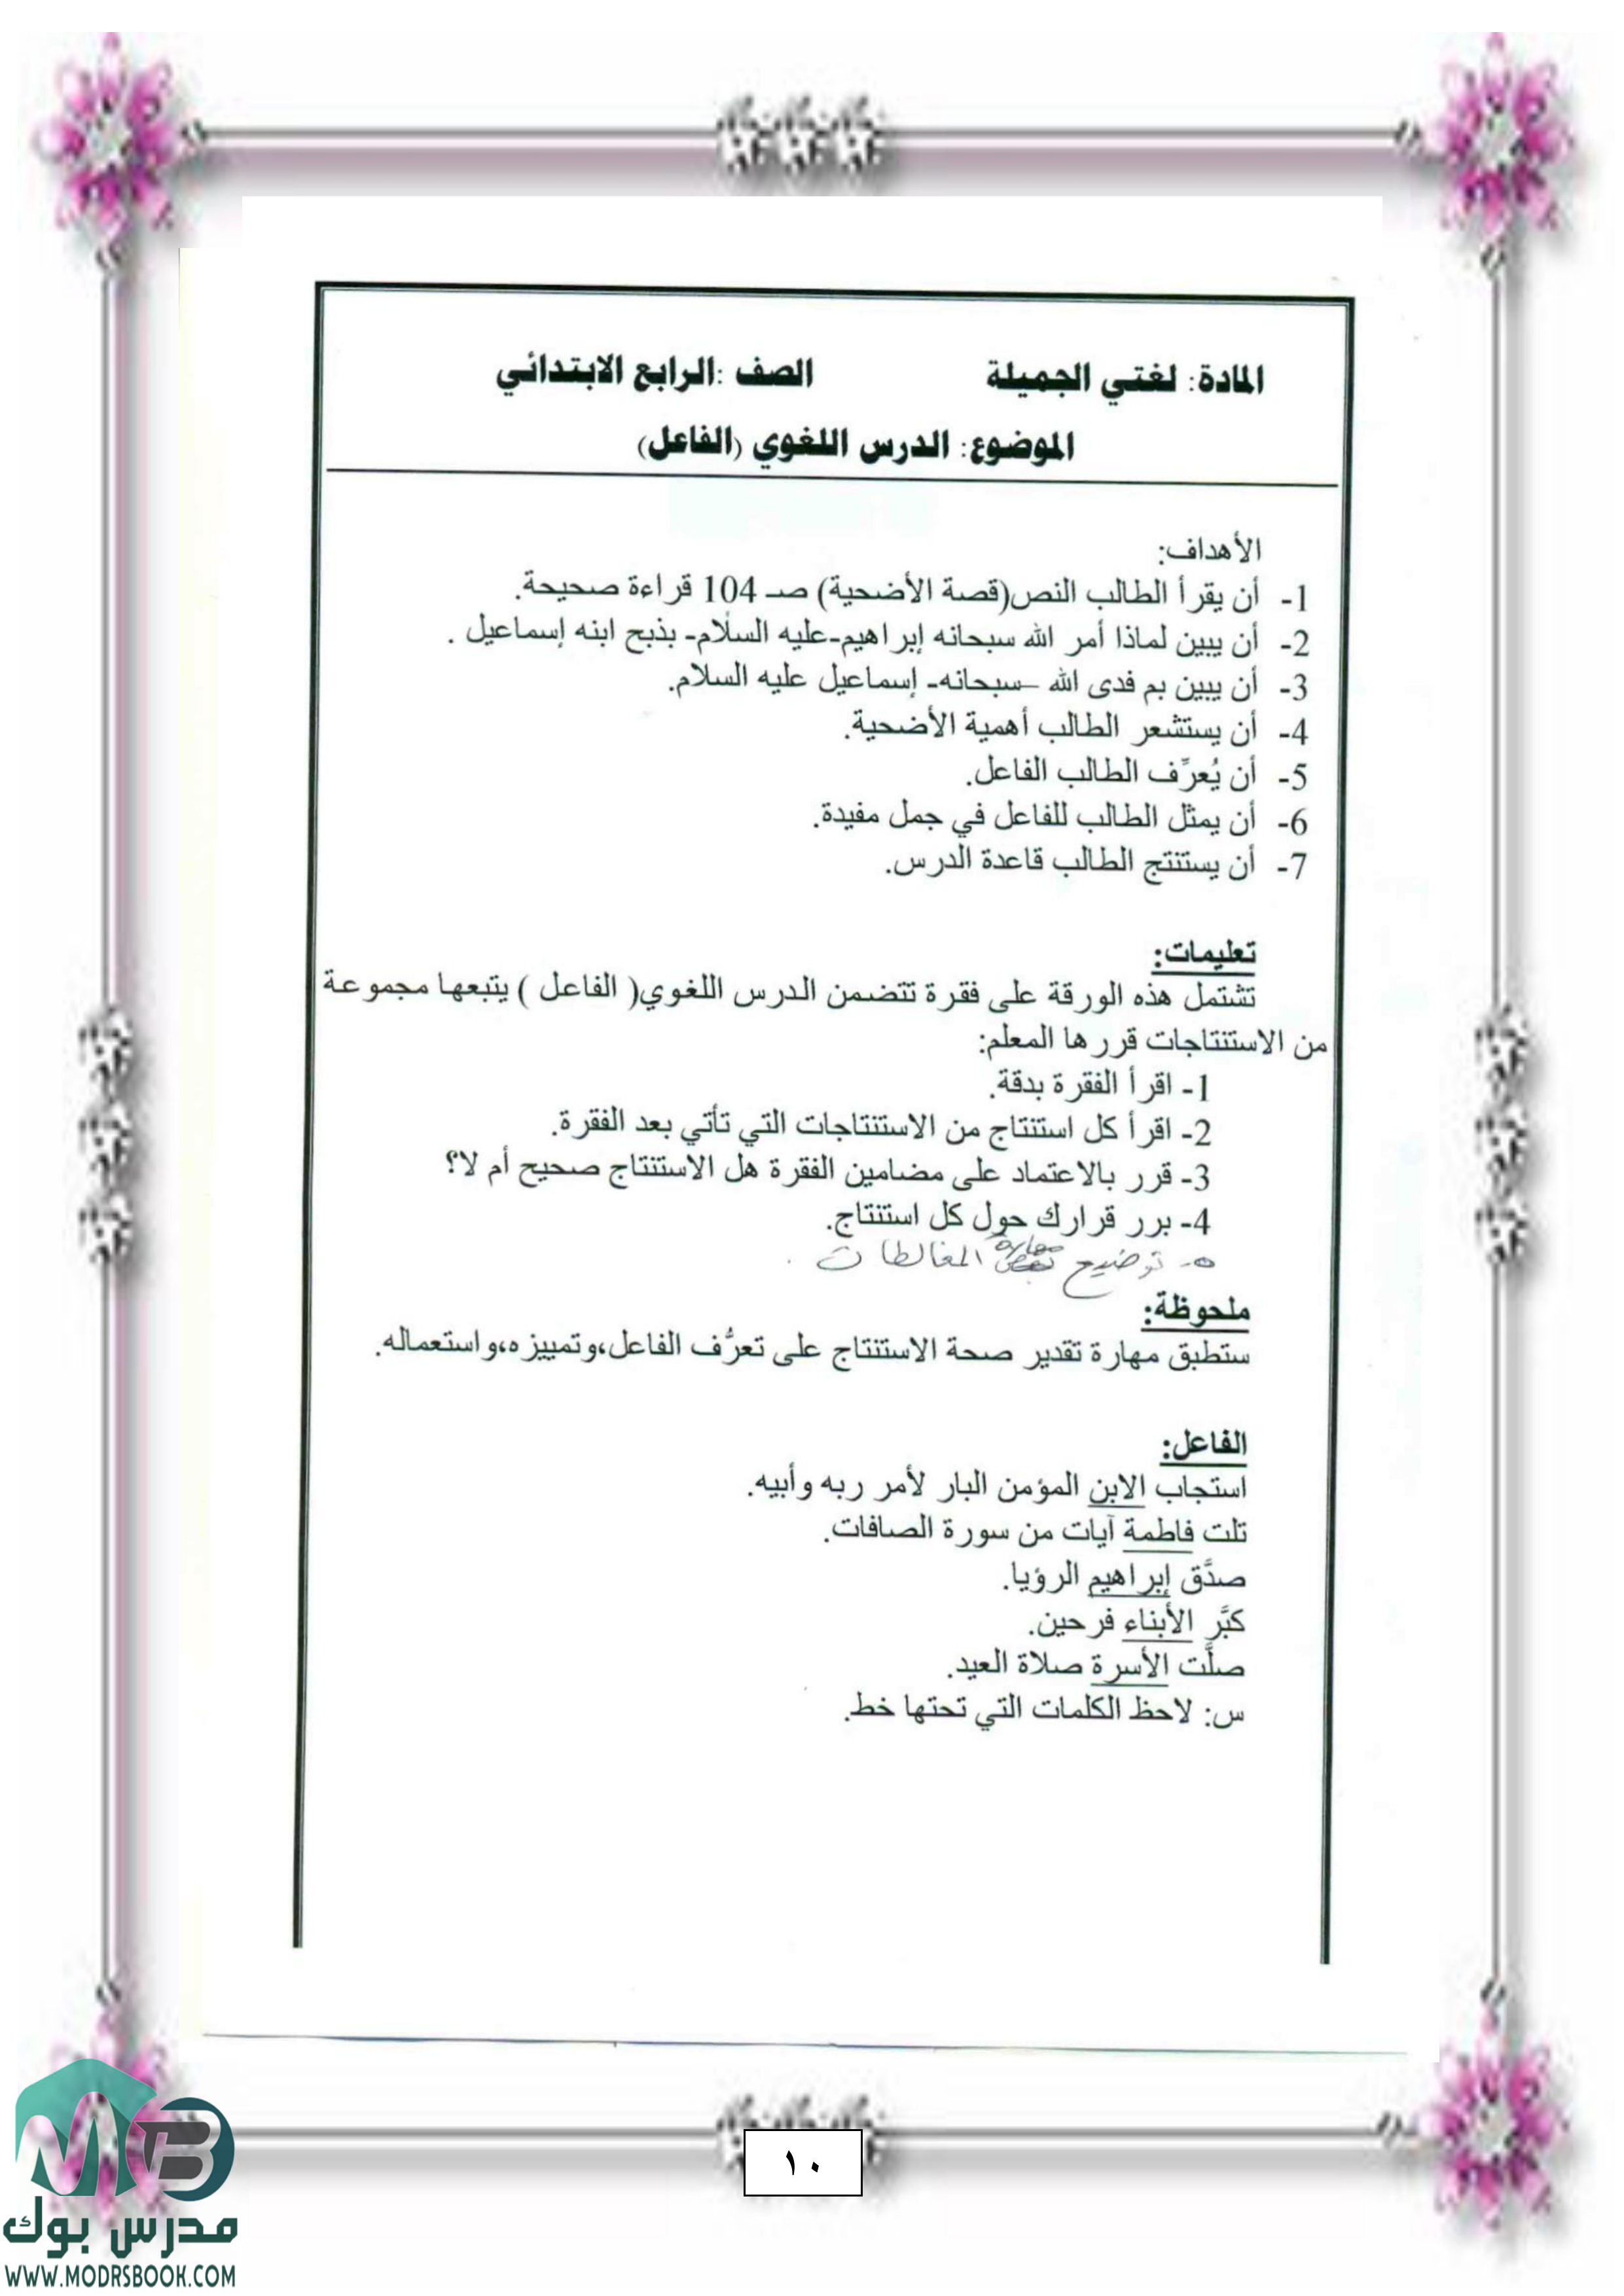 المادة: لغتي الجميلة الصف :الرابع الابتدائي
الموضوع: الدرس اللغوي (الفاعل)
الأهداف:
1- أن يقرأ الطالب النص(قصة الأضحية) صـ 104 قراءة صحيحة.
2- أن يبين لماذا أمر الله سبحانه إبراهيم-عليه السلام- بذبح ابنه إسماعيل .
3- أن يبين بم فدى الله –سبحانه- إسماعيل عليه السلام.
4- أن يستشعر الطالب أهمية الأضحية.
5- أن يُعرِّف الطالب الفاعل.
6- أن يمثل الطالب للفاعل في جمل مفيدة.
7- أن يستنتج الطالب قاعدة الدرس.
تعليمات:
تشتمل هذه الورقة على فقرة تتضمن الدرس اللغوي( الفاعل ) يتبعها مجموعة
من الاستنتاجات قررها المعلم:
1- اقرأ الفقرة بدقة.
2- اقرأ كل استنتاج من الاستنتاجات التي تأتي بعد الفقرة.
3- قرر بالاعتماد على مضامين الفقرة هل الاستنتاج صحيح أم لا؟
4- برر قرارك حول كل استنتاج.
٥- توضيح مهارة المغالطات .
ملحوظة:
ستطبق مهارة تقدير صحة الاستنتاج على تعرُّف الفاعل،وتمييزه،واستعماله.
الفاعل:
استجاب الابن المؤمن البار لأمر ربه وأبيه.
تلت فاطمة آيات من سورة الصافات.
صدَّق إبراهيم الرؤيا.
كبَّر الأبناء فرحين.
صلَّت الأسرة صلاة العيد.
س: لاحظ الكلمات التي تحتها خط.
١٠
MB
مدرس بوك
WWW.MODRSBOOK.COM